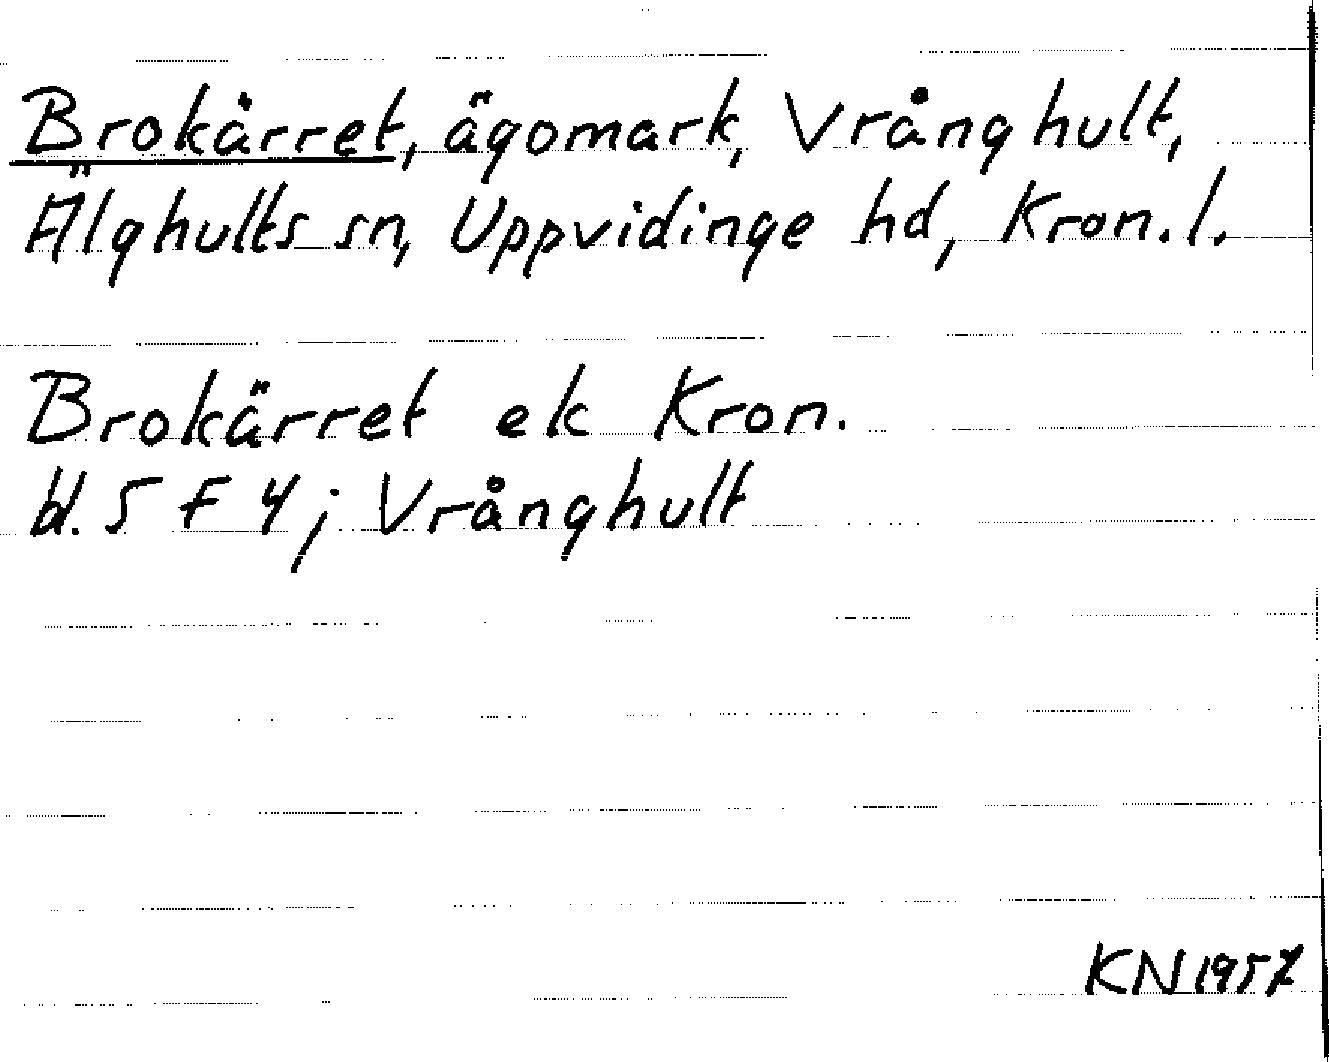 Brokärret, ägomark, Vrånghult,
Älghults sn, Uppvidinge hd, Kron. l.
Brokärret ek Kron.
bl. 5 F 4; Vrånghult
KN 1957